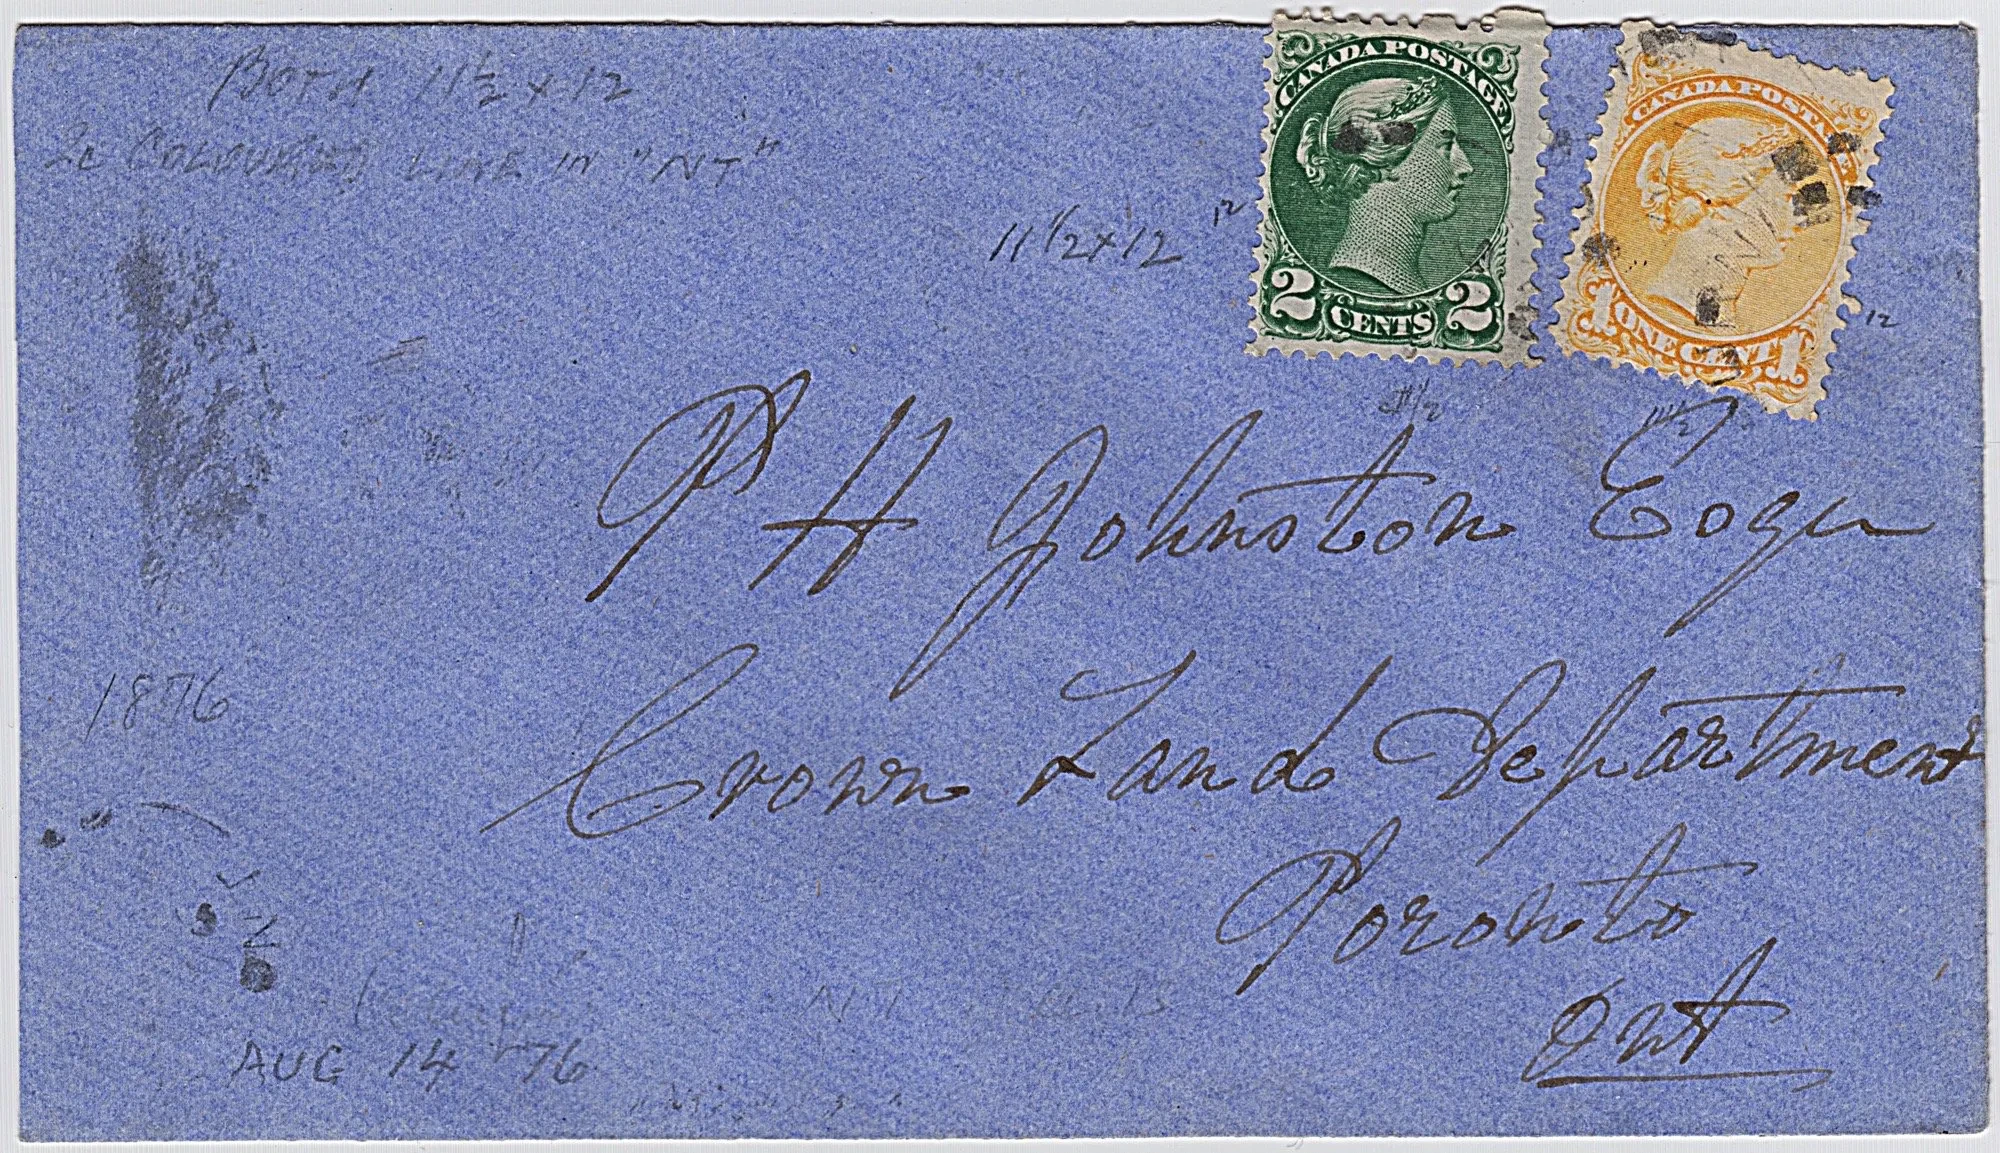 BOTH 11½ x 12
2c COLOURED LINE IN "NT"
11½x12
12
CANADA POSTAGE
2 CENTS 2
CANADA POSTAGE
1 ONE CENT 1
12
11½
11½
P H Johnston Esqr
Crown Land Department
Toronto
Ont
1876
AUG 14 76